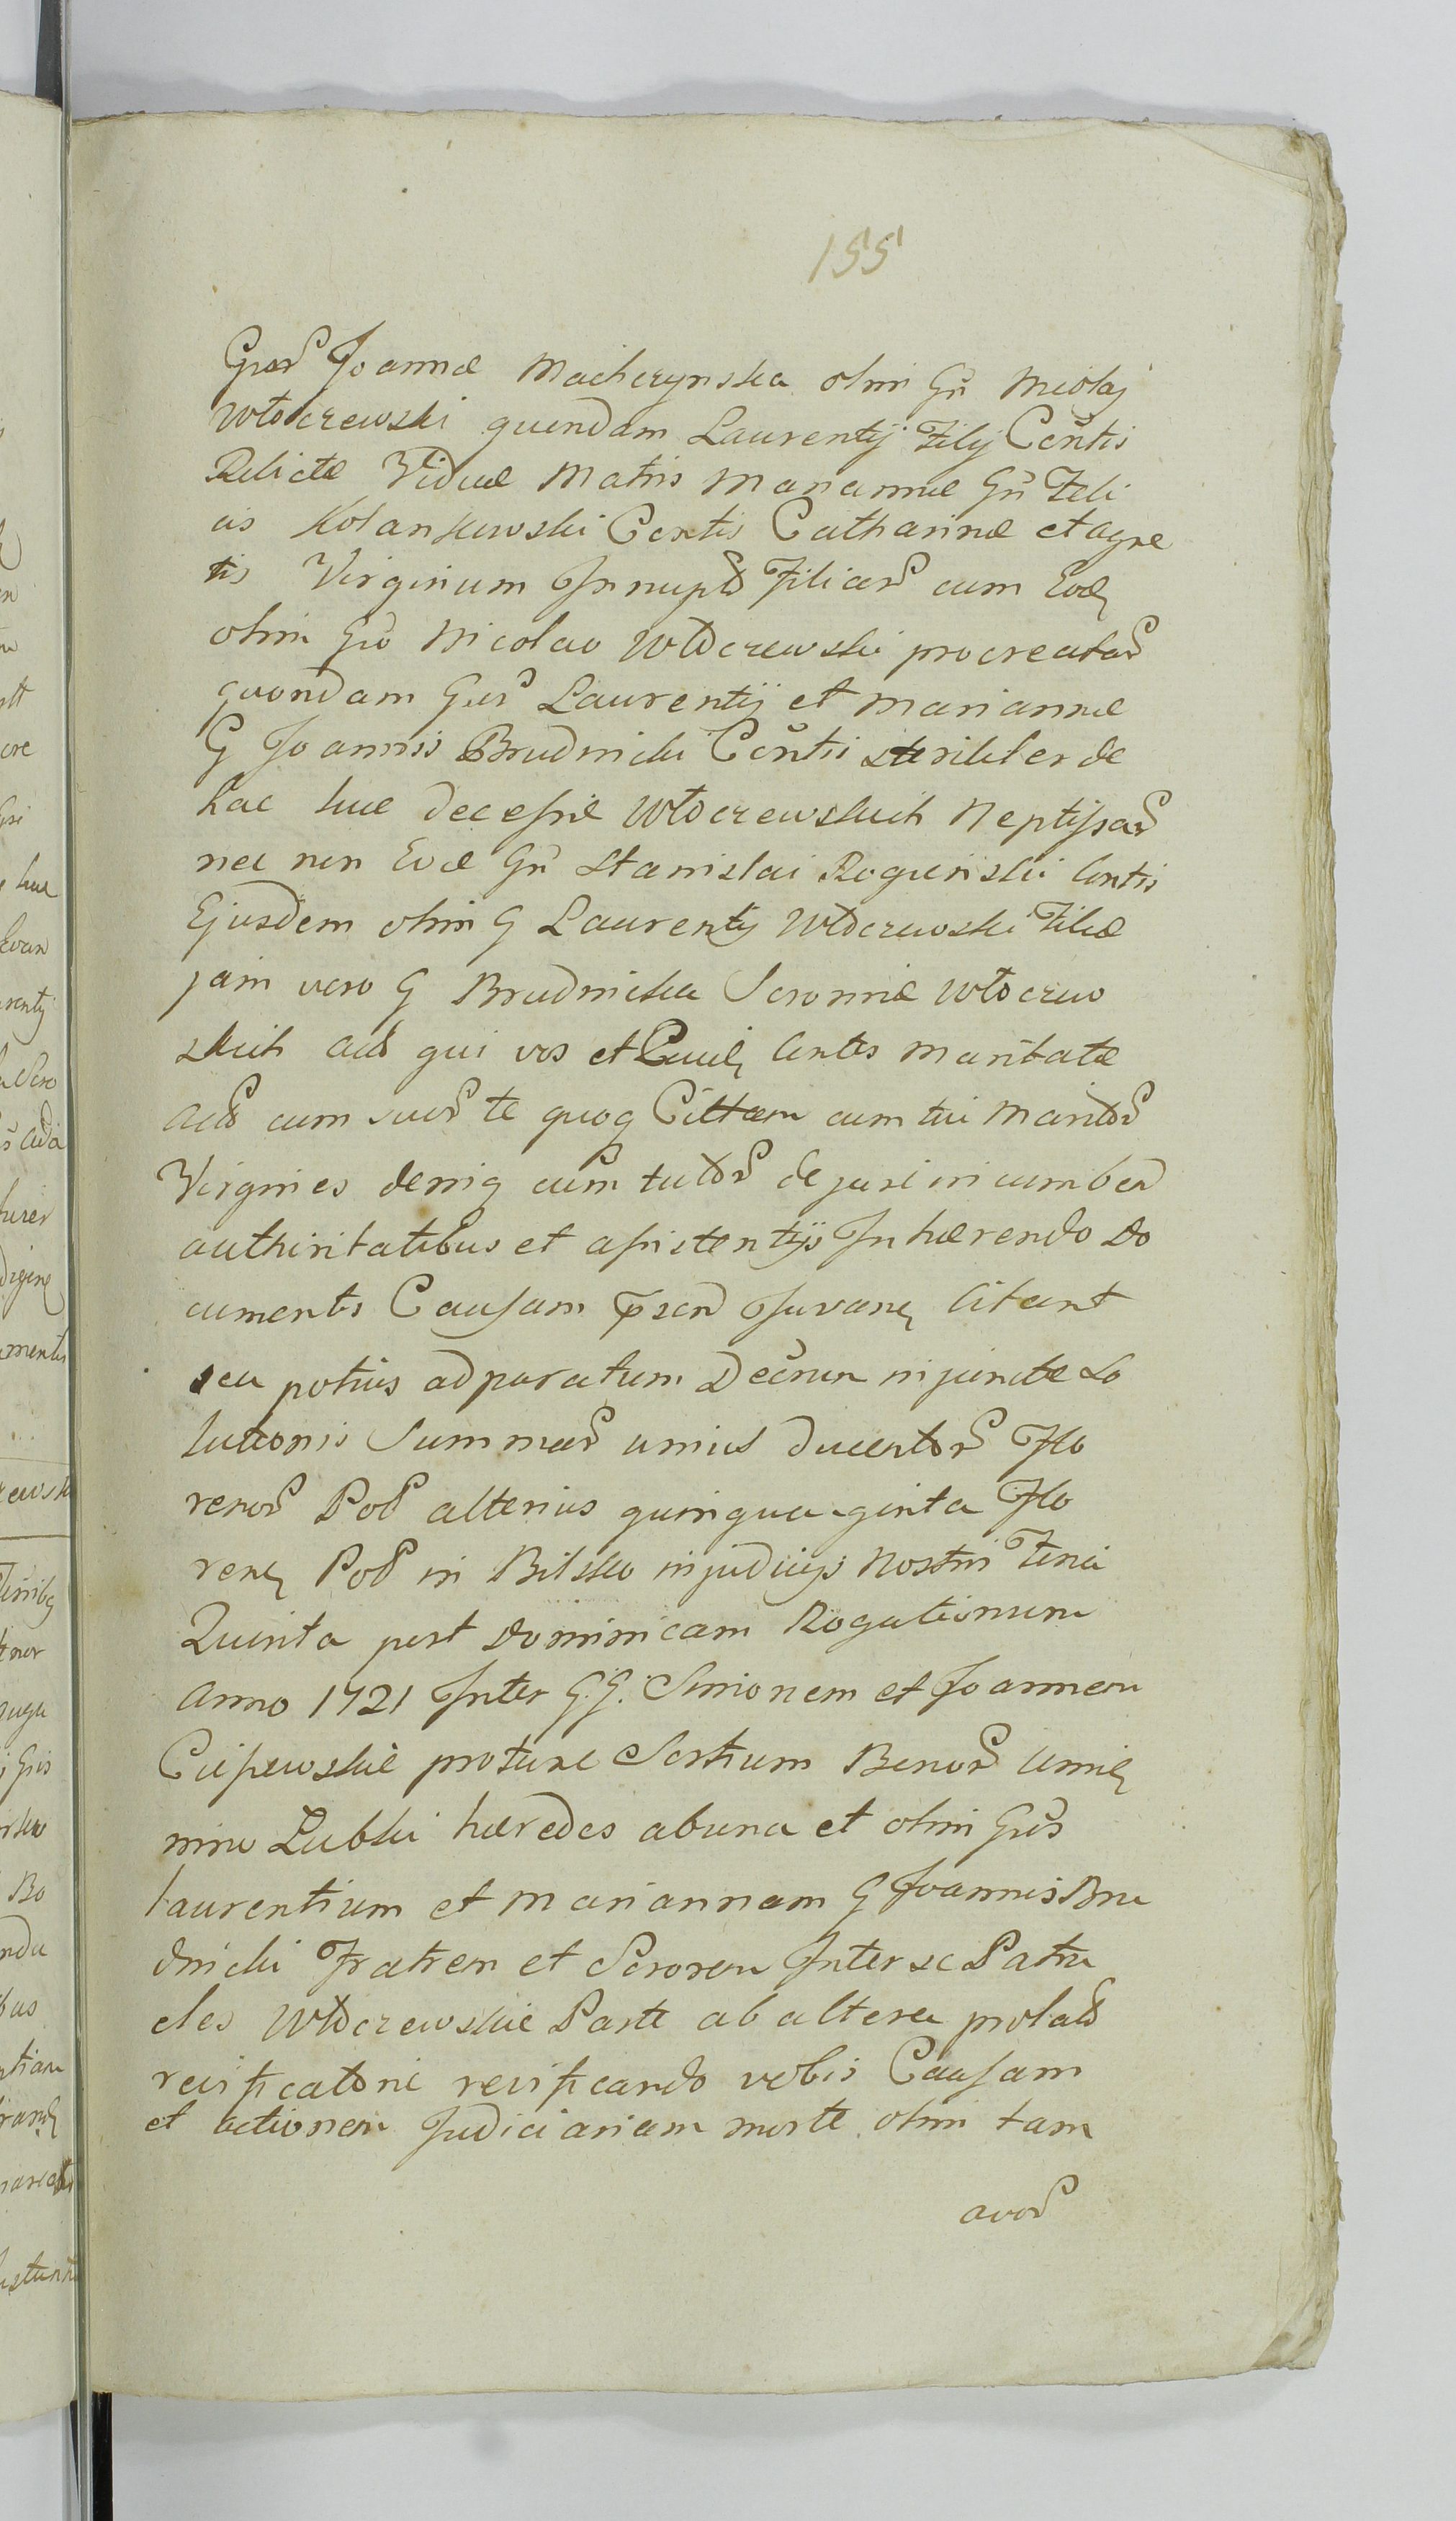 155
Gnor Joannæ Macherynska olim Gñ Micolaj
Włoczewski quendam Laurentij Filij Cõntis
Relictæ Viduæ Matris Mariannæ Gñ Feli
cis Kolankowski Contis Catharinæ et Agne
tis Virginum Innupt Filiar cum Eod
olim Gño Nicolao Włoczewski procreatar
quondam Gner Laurentij et Mariannæ
G Joannis Brudnicki Cõntis steriliter de
hac luce decessæ Włoczewskich Neptissar
nec non Evæ Gñ Stanislai Rogienski Contis
Ejusdem olim G Laurentij Włoczewski Filiæ
jam vero G Brudnicka Sororinæ Włoczew
skich act qui vos et Quilt Contes maritatæ
Act cum suor te quoq Cittam cum tui Maritor
Virgines deniq cum tutor de jure incumben
authoritatibus et assistentijs Inhærendo Do
cumentis Causam præsen Juvan Citant
seu potius ad paratum Decrum injunctæ So
lutionis Summar unius ducentor Flo
renor Pol alterius quinquaginta Flo
ren Pol in Bilsko injudicijs Nostri Feria
Quinta post Dominicam Rogationum
Anno 1721 Inter G.G. Simonem et Joannem
Ciepewskie protunc Sortium Bonor
mino Lubki hæredes abuna et olim Gnos
Laurentium et Mariannam G Joannis Bru
dnicki Fratrem et Sororem Inter se Patru
eles Włoczewskie Parte ab altera prolat
reussficatorie reussficando vobis Causam
et actionem Judiciariam morte olim tam
avor